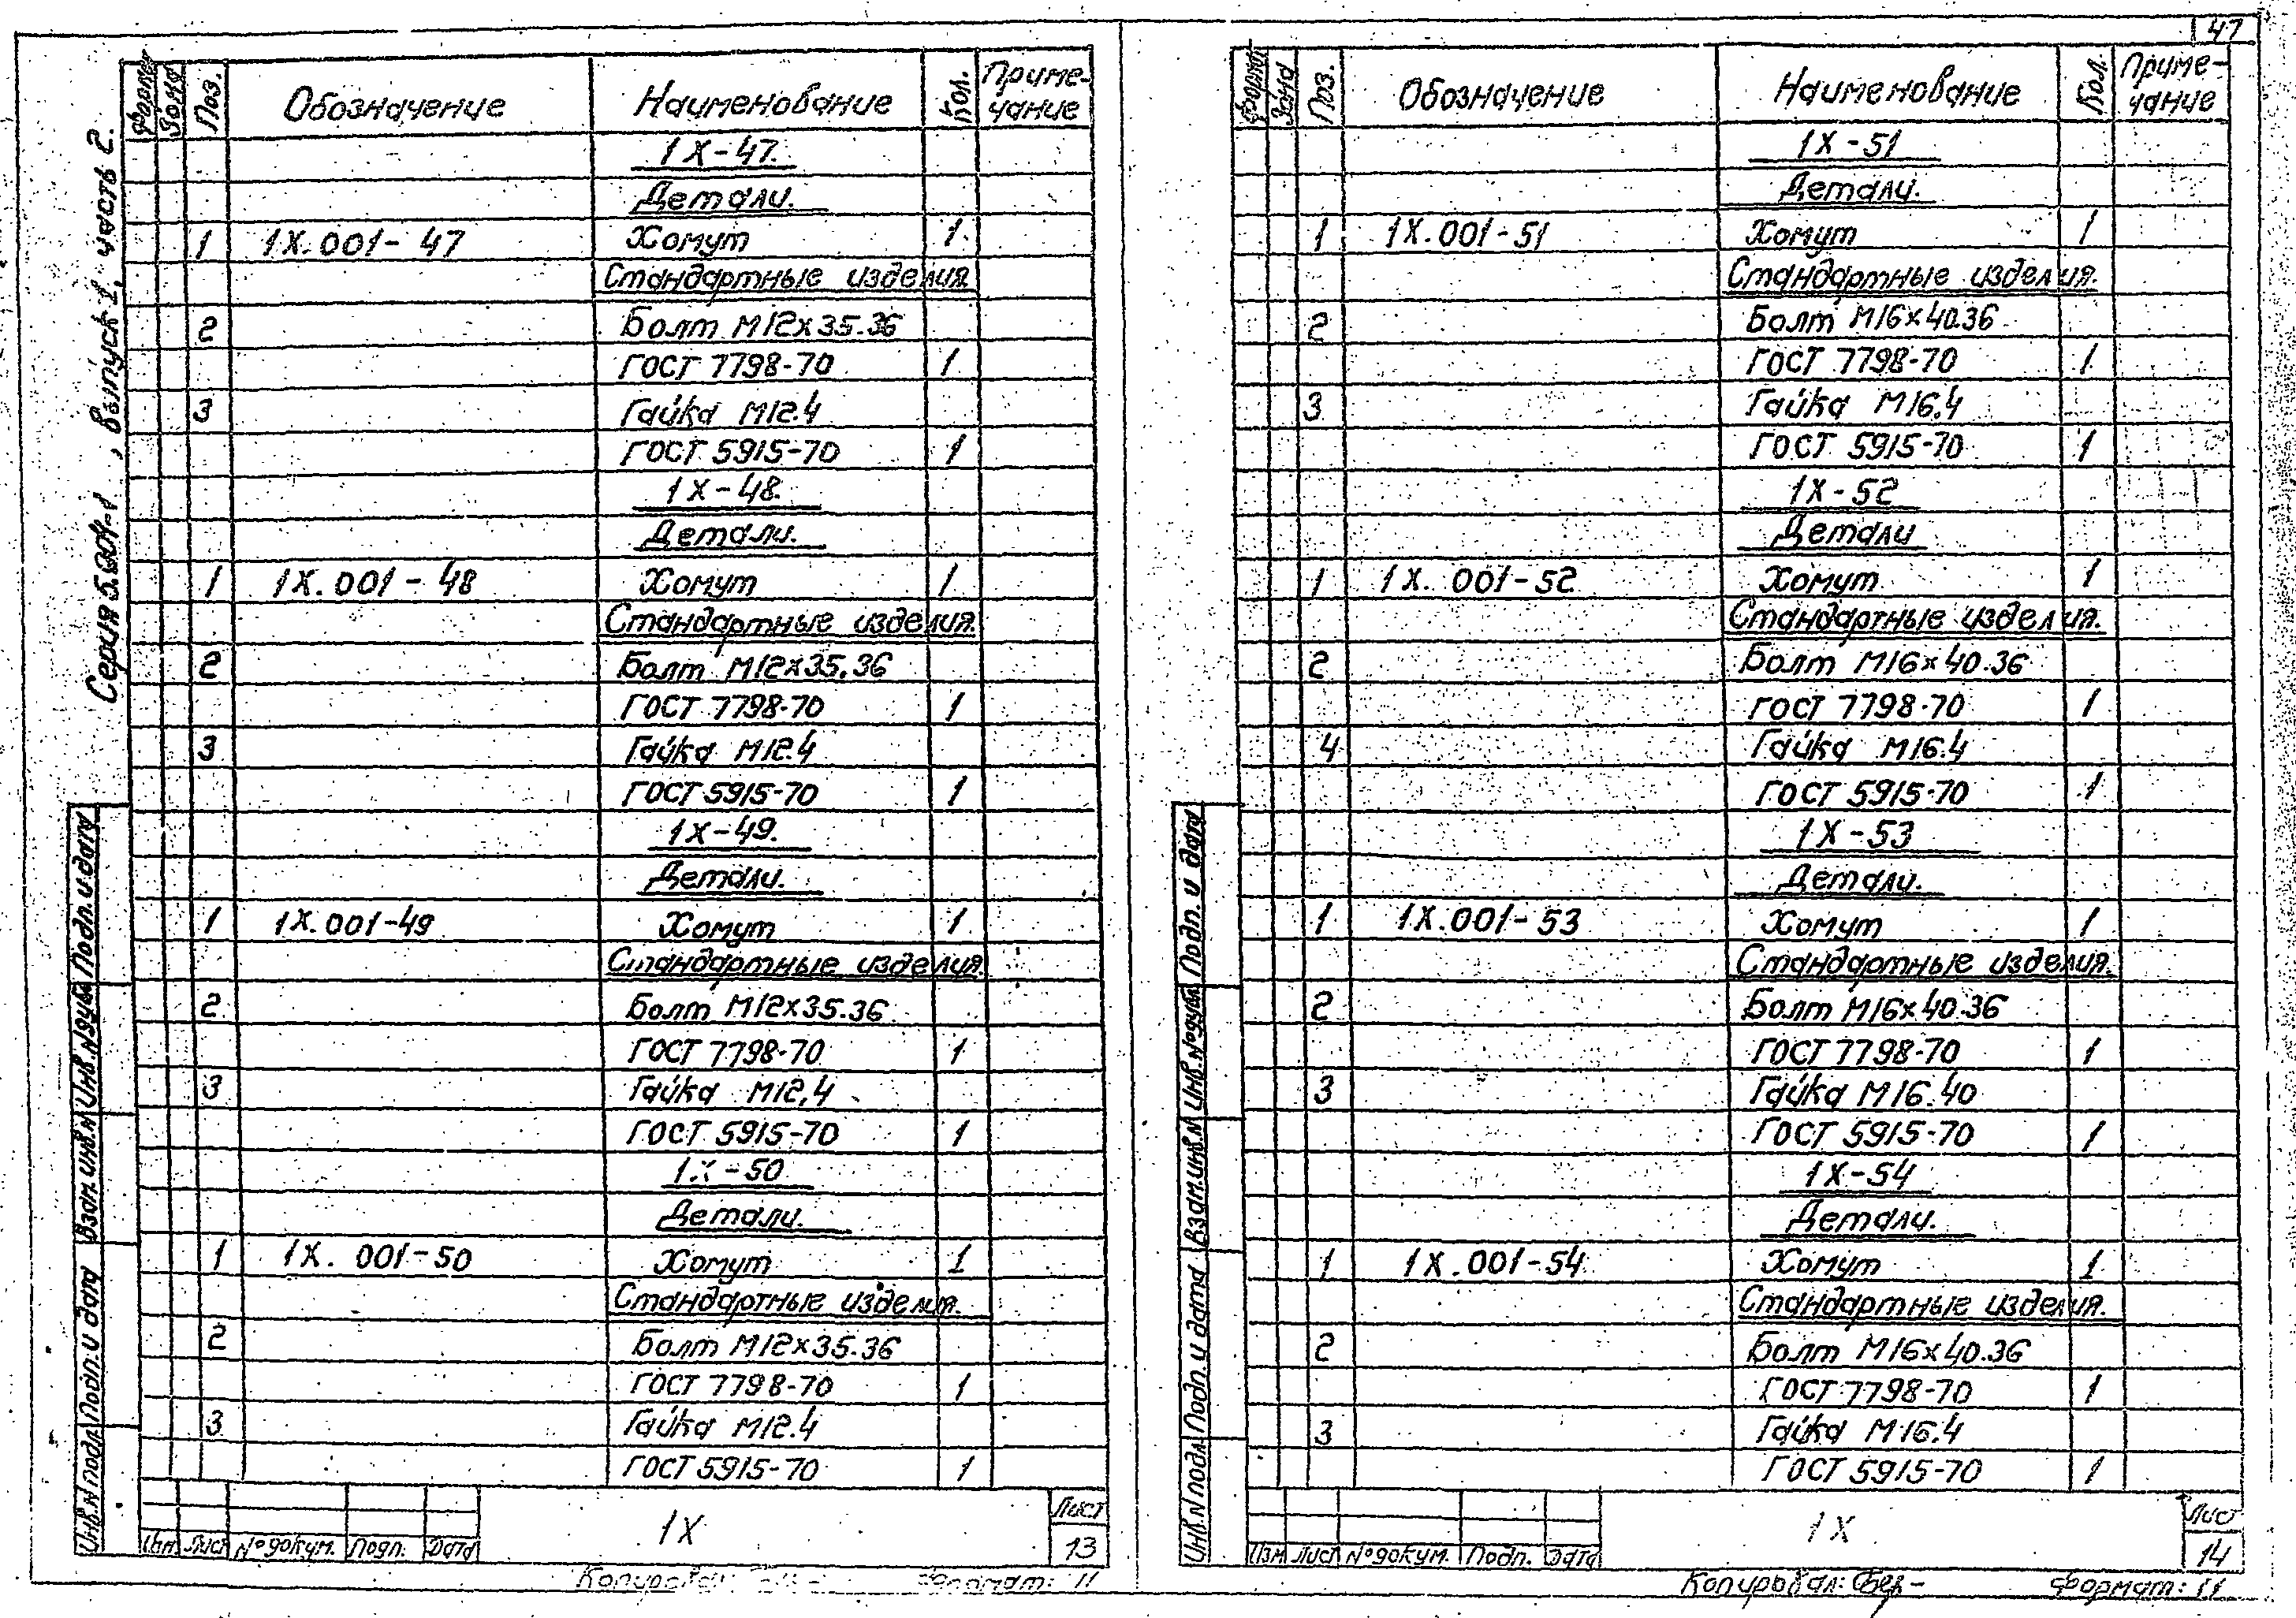 47
Серия 5.904-1 , выпуск 1, часть 2.
Формат Зона Поз. Обозначение Наименование Кол. Приме-
чание
1Х-47.
Детали.
1 1Х.001-47 Хомут 1
Стандартные изделия.
2 Болт М12х35.36
ГОСТ 7798-70 1
3 Гайка М12.4
ГОСТ 5915-70 1
1Х-48.
Детали.
1 1Х.001-48 Хомут 1
Стандартные изделия.
2 Болт М12х35.36
ГОСТ 7798-70 1
3 Гайка М12.4
ГОСТ 5915-70 1
1Х-49.
Детали.
1 1Х.001-49 Хомут 1
Стандартные изделия.
2 Болт М12х35.36
ГОСТ 7798-70 1
3 Гайка М12,4
ГОСТ 5915-70 1
1Х-50
Детали.
1 1Х.001-50 Хомут 1
Стандартные изделия.
2 Болт М12х35.36
ГОСТ 7798-70 1
3 Гайка М12.4
ГОСТ 5915-70 1
Инв.N подл. Подп. и дата Взам.инв.N Инв.Nдубл Подп. и дата
Изм. Лист N°докум. Подп. Дата
1Х
Лист
13
Копировал Формат: 11
Формат Зона Поз. Обозначение Наименование Кол. Приме-
чание
1Х-51
Детали.
1 1Х.001-51 Хомут 1
Стандартные изделия.
2 Болт М16х40.36
ГОСТ 7798-70 1
3 Гайка М16.4
ГОСТ 5915-70 1
1Х-52
Детали
1 1Х.001-52 Хомут 1
Стандартные изделия.
2 Болт М16х40.36
ГОСТ 7798-70 1
4 Гайка М16.4
ГОСТ 5915-70 1
1Х-53
Детали.
1 1Х.001-53 Хомут 1
Стандартные изделия.
2 Болт М16х40.36
ГОСТ 7798-70 1
3 Гайка М16.40
ГОСТ 5915-70 1
1Х-54
Детали.
1 1Х.001-54 Хомут 1
Стандартные изделия.
2 Болт М16х40.36
ГОСТ 7798-70 1
3 Гайка М16.4
ГОСТ 5915-70 1
Инв.N подл. Подп. и дата Взам.инв.N Инв.N°дубл Подп. и дата
Изм Лист N°докум. Подп. Дата
1Х
Лист
14
Копировал: Формат: 11